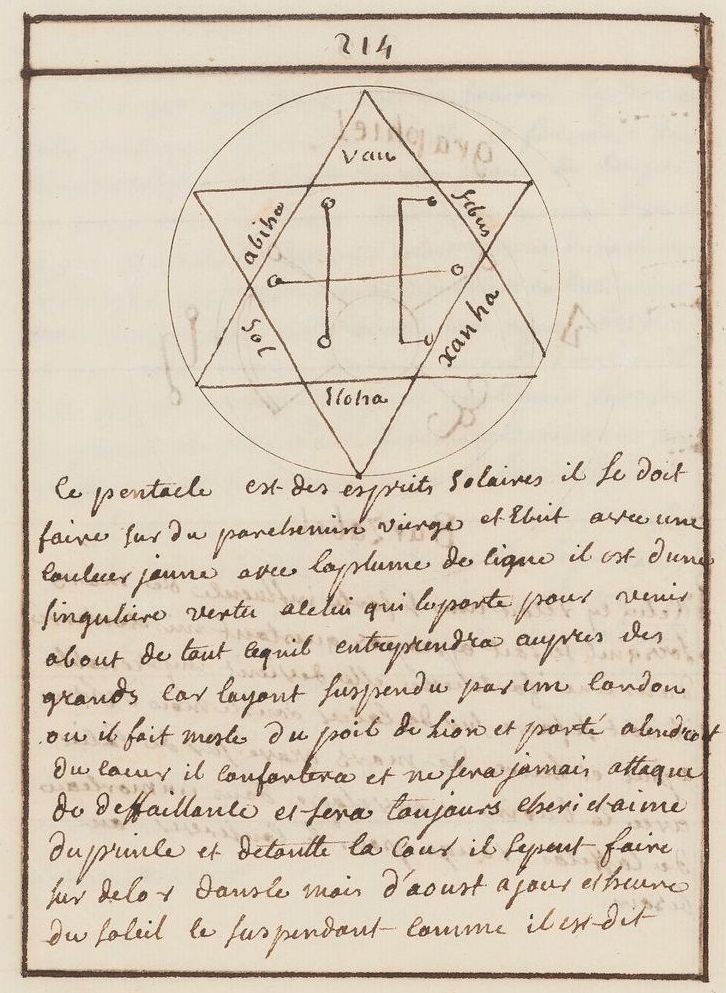 214
van
abiha
sebus
sol
xanha
Iloha
Ce pentacle est des esprits Solaires il se doit
faire sur du parchemin vierge et avec une
couleur jaune avec la plume de cigne il est dune
singuliere vertu acelui qui leporte pour venir
about de tout cequil entreprendra aupres des
grands car layant suspendu par un cordon
ou il fait mesle du poil de Lion et porté alendroit
du coeur il confortera et ne sera jamais attaque
de deffaillance et sera toujours cheri et aime
du prince et detoutte la Cour il sepeut faire
sur delor dansle mois d'aoust ajour et heure
du soleil le suspendant comme il est dit